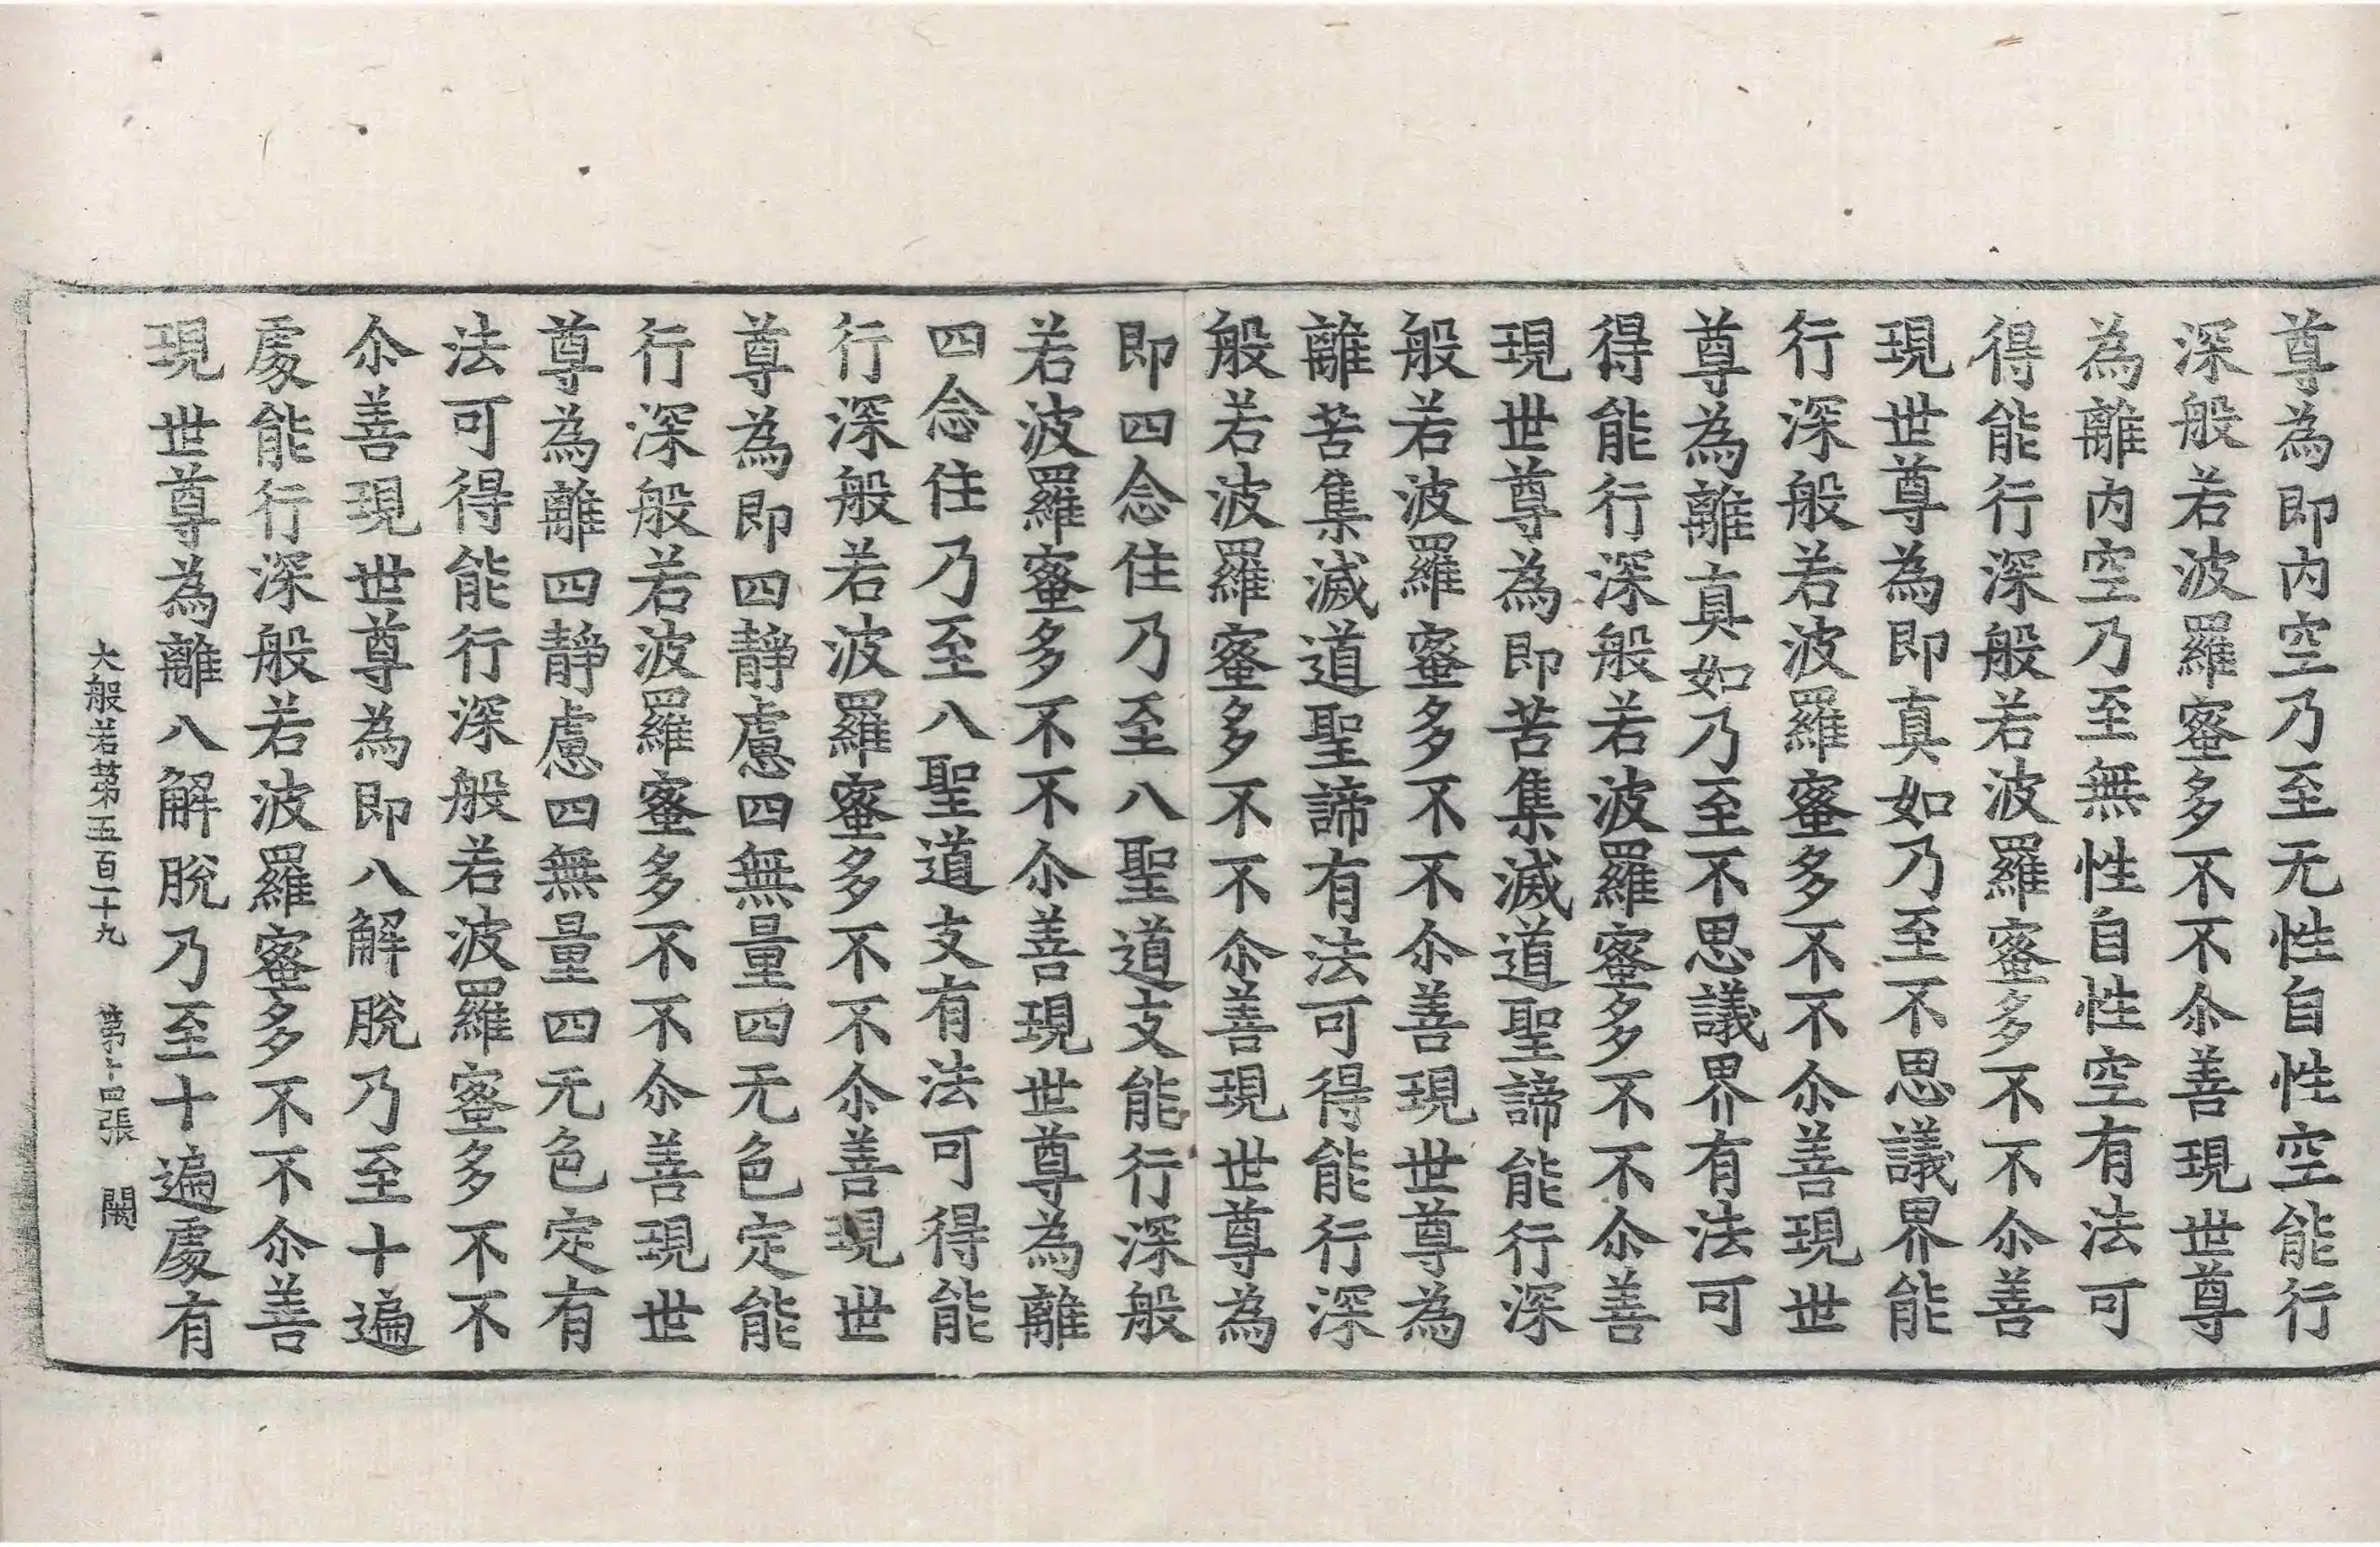 尊為即内空乃至无性自性空能行
深般若波羅蜜多不不尒善現世尊
為離内空乃至無性自性空有法可
得能行深般若波羅蜜多不不尒善
現世尊為即真如乃至不思議界能
行深般若波羅蜜多不不尒善現世
尊為離真如乃至不思議界有法可
得能行深般若波羅蜜多不不尒善
現世尊為即苦集滅道聖諦能行深
般若波羅蜜多不不尒善現世尊為
離苦集滅道聖諦有法可得能行深
般若波羅蜜多不不尒善現世尊為
即四念住乃至八聖道支能行深般
若波羅蜜多不不尒善現世尊為離
四念住乃至八聖道支有法可得能
行深般若波羅蜜多不不尒善現世
尊為即四靜慮四無量四无色定能
行深般若波羅蜜多不不尒善現世
尊為離四靜慮四無量四无色定有
法可得能行深般若波羅蜜多不不
尒善現世尊為即八解脫乃至十遍
處能行深般若波羅蜜多不不尒善
現世尊為離八解脫乃至十遍處有
大般若第五百一十九 第十四張 闕